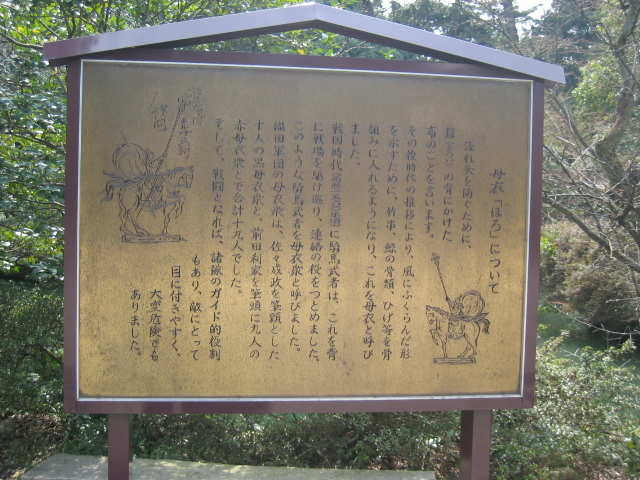 母衣「ほろ」について
流れ矢を防ぐために、
鎧(よろい)の背にかけた
布のことを言います。
その後時代の推移により、風にふくらんだ形
を示すために、竹事、鯨の骨類 ひげ等を骨
組みに入れるようになり、これを母衣と呼び
ました。
戦国時代に騎馬武者は、これを背
に戦場を駆け巡り、連絡の役をつとめました。
このような騎馬武者を母衣衆と呼びました。
織田軍団の母衣衆は、佐々成政を筆頭とした
十人の黒母衣衆と、前田利家を筆頭に九人の
赤母衣衆とで合計十九人でした。
そして、戦闘となれば、諸隊のガイド的役割
もあり、敵にとって
目に付きやすく、
大変危険でも
ありました。